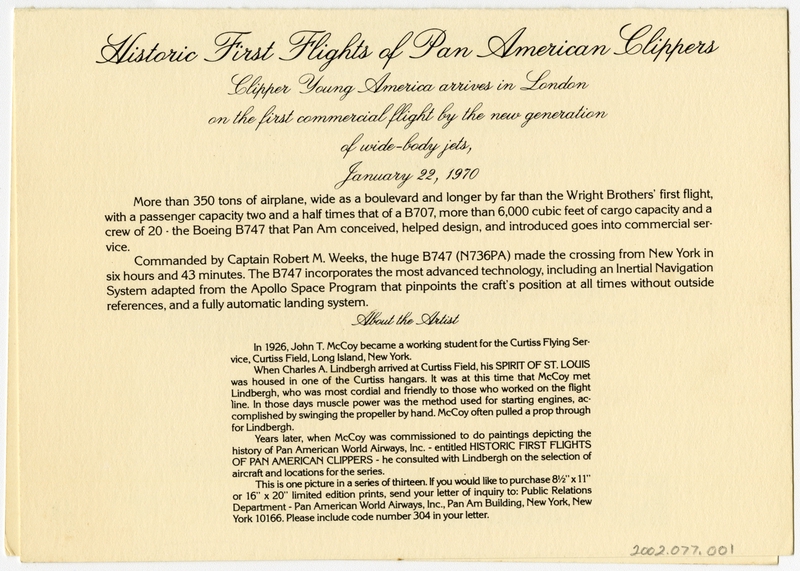 Historic First Flights of Pan American Clippers
Clipper Young America arrives in London
on the first commercial flight by the new generation
of wide-body jets,
January 22, 1970
More than 350 tons of airplane, wide as a boulevard and longer by far than the Wright Brothers' first flight,
with a passenger capacity two and a half times that of a B707, more than 6,000 cubic feet of cargo capacity and a
crew of 20 - the Boeing B747 that Pan Am conceived, helped design, and introduced goes into commercial ser-
vice.
Commanded by Captain Robert M. Weeks, the huge B747 (N736PA) made the crossing from New York in
six hours and 43 minutes. The B747 incorporates the most advanced technology, including an Inertial Navigation
System adapted from the Apollo Space Program that pinpoints the craft's position at all times without outside
references, and a fully automatic landing system.
About the Artist
In 1926, John T. McCoy became a working student for the Curtiss Flying Ser-
vice, Curtiss Field, Long Island, New York.
When Charles A. Lindbergh arrived at Curtiss Field, his SPIRIT OF ST. LOUIS
was housed in one of the Curtiss hangars. It was at this time that McCoy met
Lindbergh, who was most cordial and friendly to those who worked on the flight
line. In those days muscle power was the method used for starting engines, ac-
complished by swinging the propeller by hand. McCoy often pulled a prop through
for Lindbergh.
Years later, when McCoy was commissioned to do paintings depicting the
history of Pan American World Airways, Inc. - entitled HISTORIC FIRST FLIGHTS
OF PAN AMERICAN CLIPPERS - he consulted with Lindbergh on the selection of
aircraft and locations for the series.
This is one picture in a series of thirteen. If you would like to purchase 8½" x 11"
or 16" x 20" limited edition prints, send your letter of inquiry to: Public Relations
Department - Pan American World Airways, Inc., Pan Am Building, New York, New
York 10166. Please include code number 304 in your letter.
2002.077.001